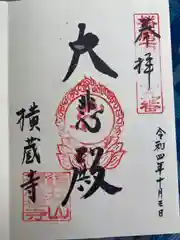 奉拝
令和四年十月三日
大悲殿
横蔵寺